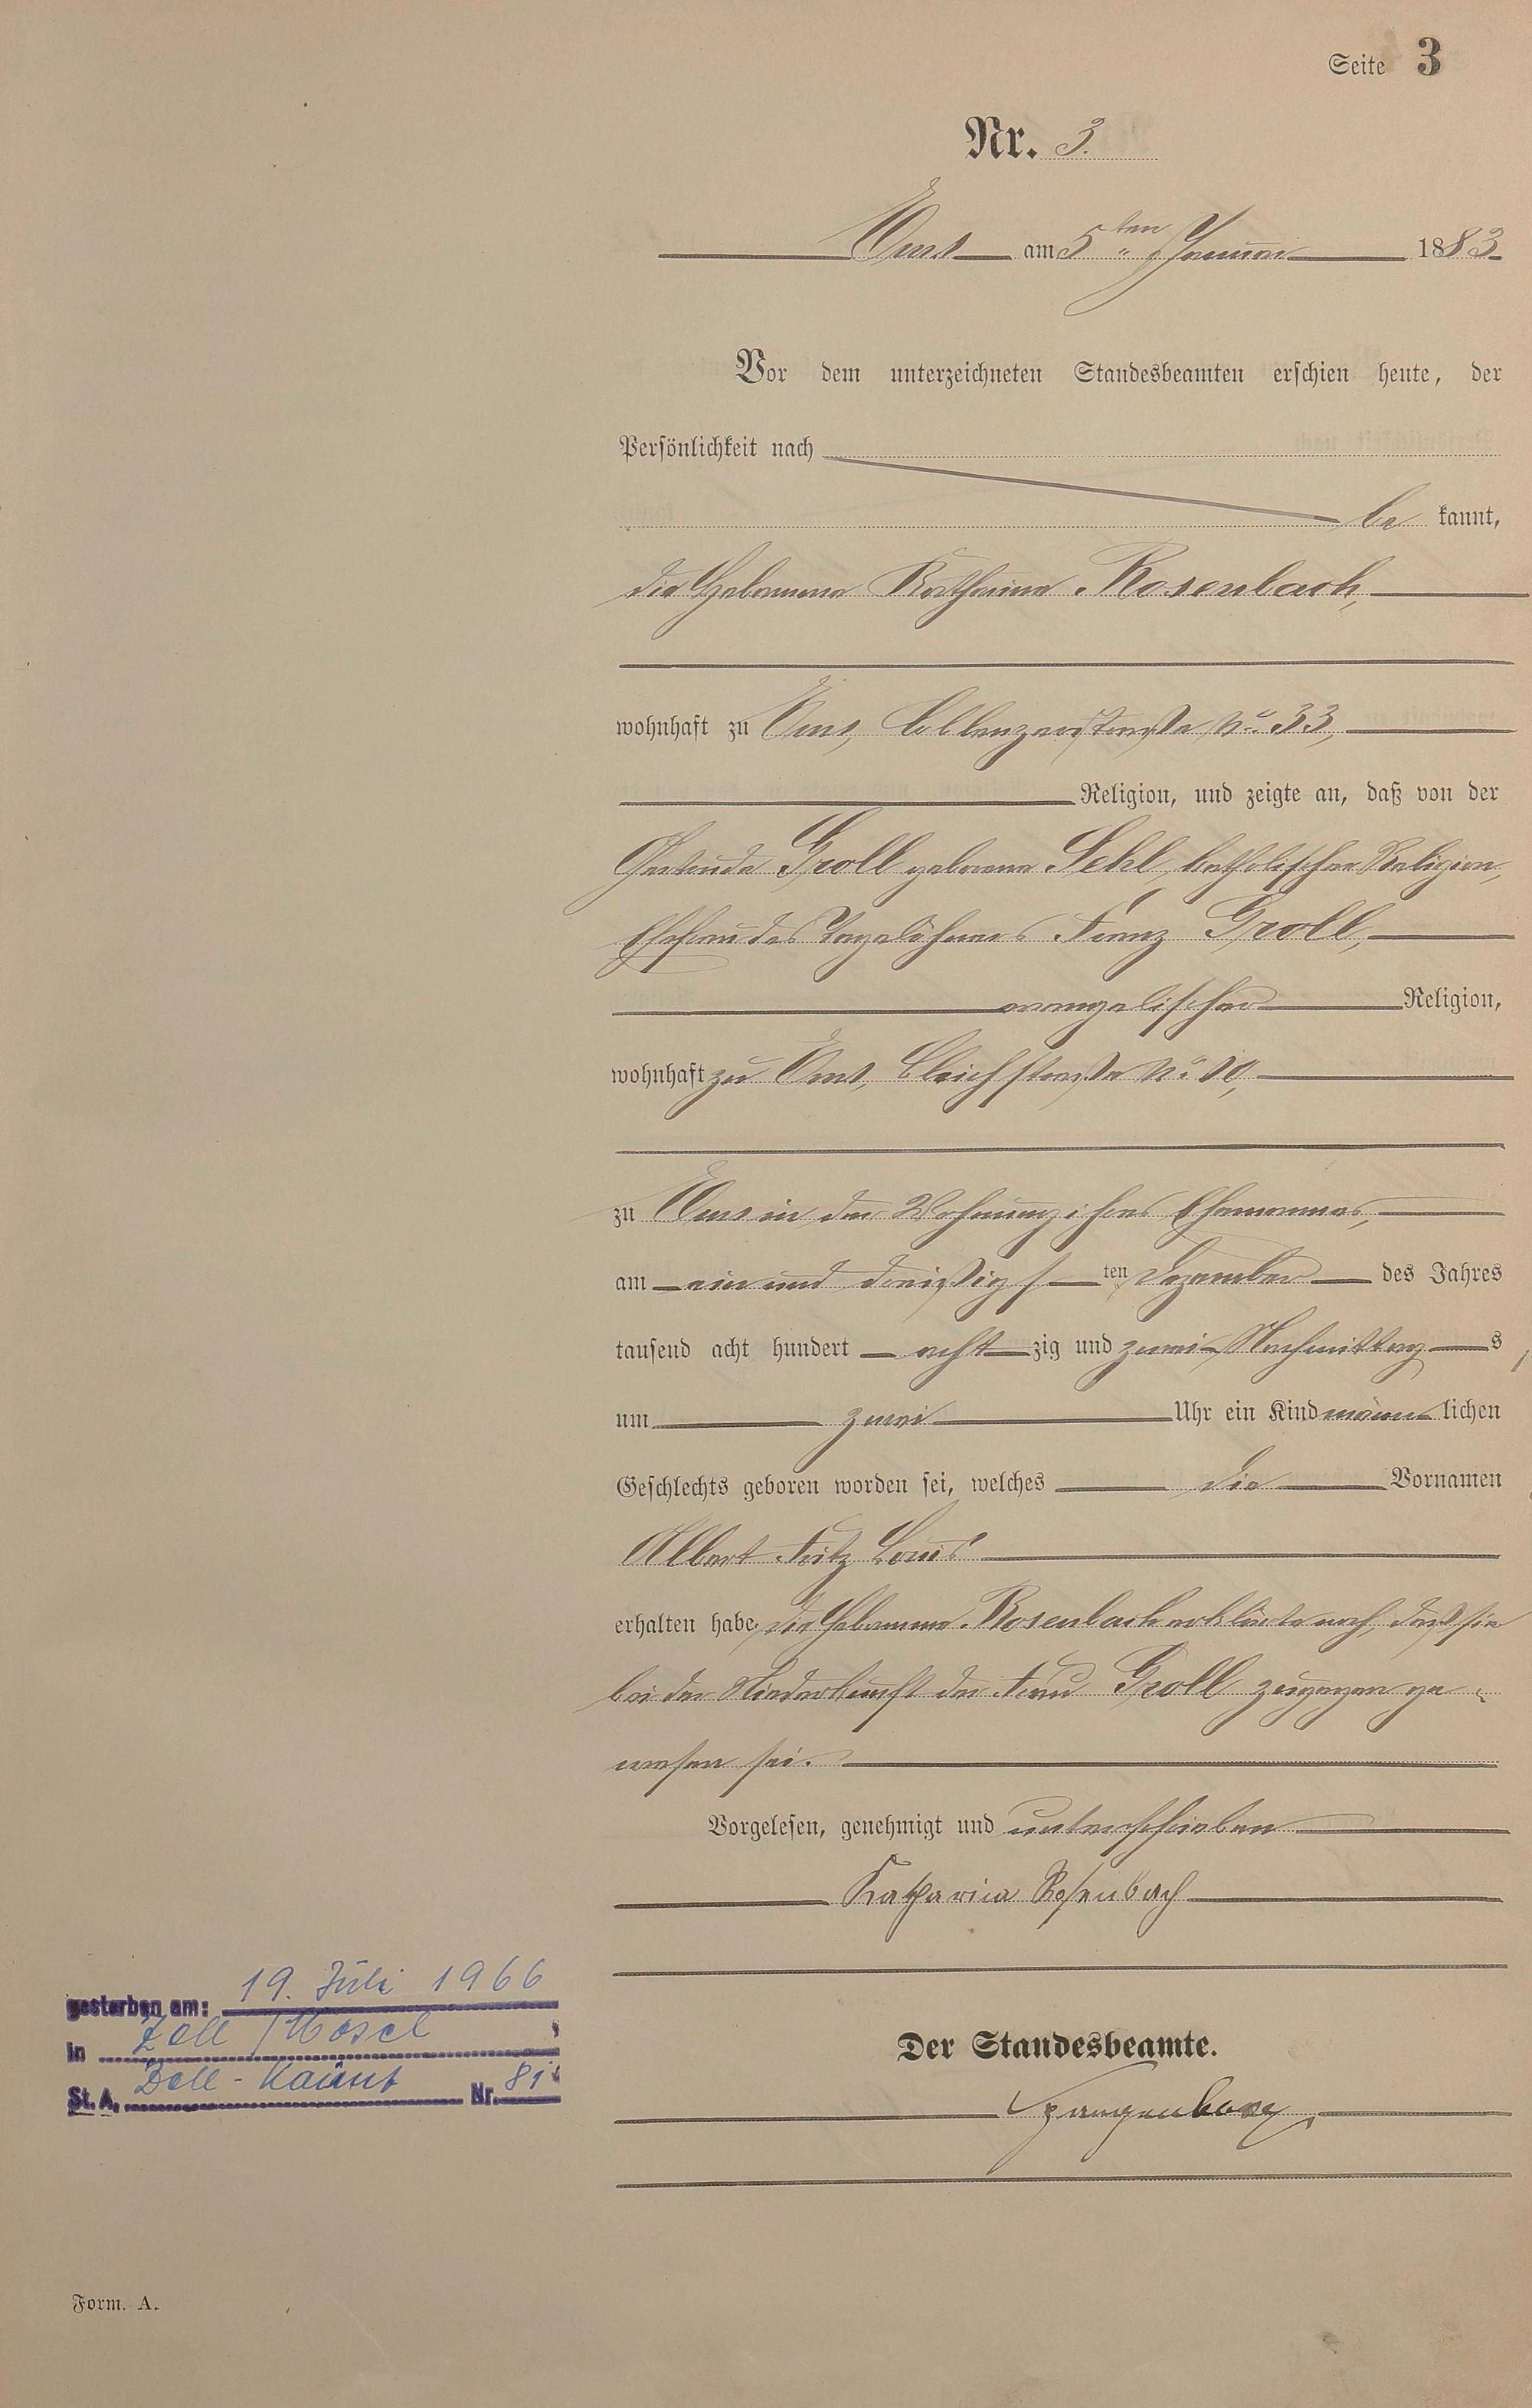 Seite 3
Nr. 3.
Ems am 5ten Januar 1883
Vor dem unterzeichneten Standesbeamten erschien heute, der
Persönlichkeit nach
be kannt,
die Hebamme Katharina Rosenbach,
wohnhaft zu Ems, Coblenzerstraße No. 33,
Religion, und zeigte an, daß von der
Gertrude Groll geborene Sehl, katholischer Religion,
Ehefrau des Tagelöhners Franz Groll,
evangelischer Religion,
wohnhaft zu Ems, Bleichstraße No.
zu Ems in der Wohnung ihres Ehemannes,
am ein und dreißigsten Dezember des Jahres
tausend acht hundert achtzig und zwei Nachmittags
um zwei Uhr ein Kind männlichen
Geschlechts geboren worden sei, welches die Vornamen
Albert Fritz Louis
erhalten habe, die Hebamme Rosenbach erklärte noch, daß sie
bei der Niederkunft der Frau Groll zugegen ge-
wesen sei.
Vorgelesen, genehmigt und unterschrieben
Katharina Rosenbach
gestorben am: 19. Juli 1966
in Zell / Mosel
St. A. Zell-Kaimt Nr. 81
Der Standesbeamte.
Form. A.